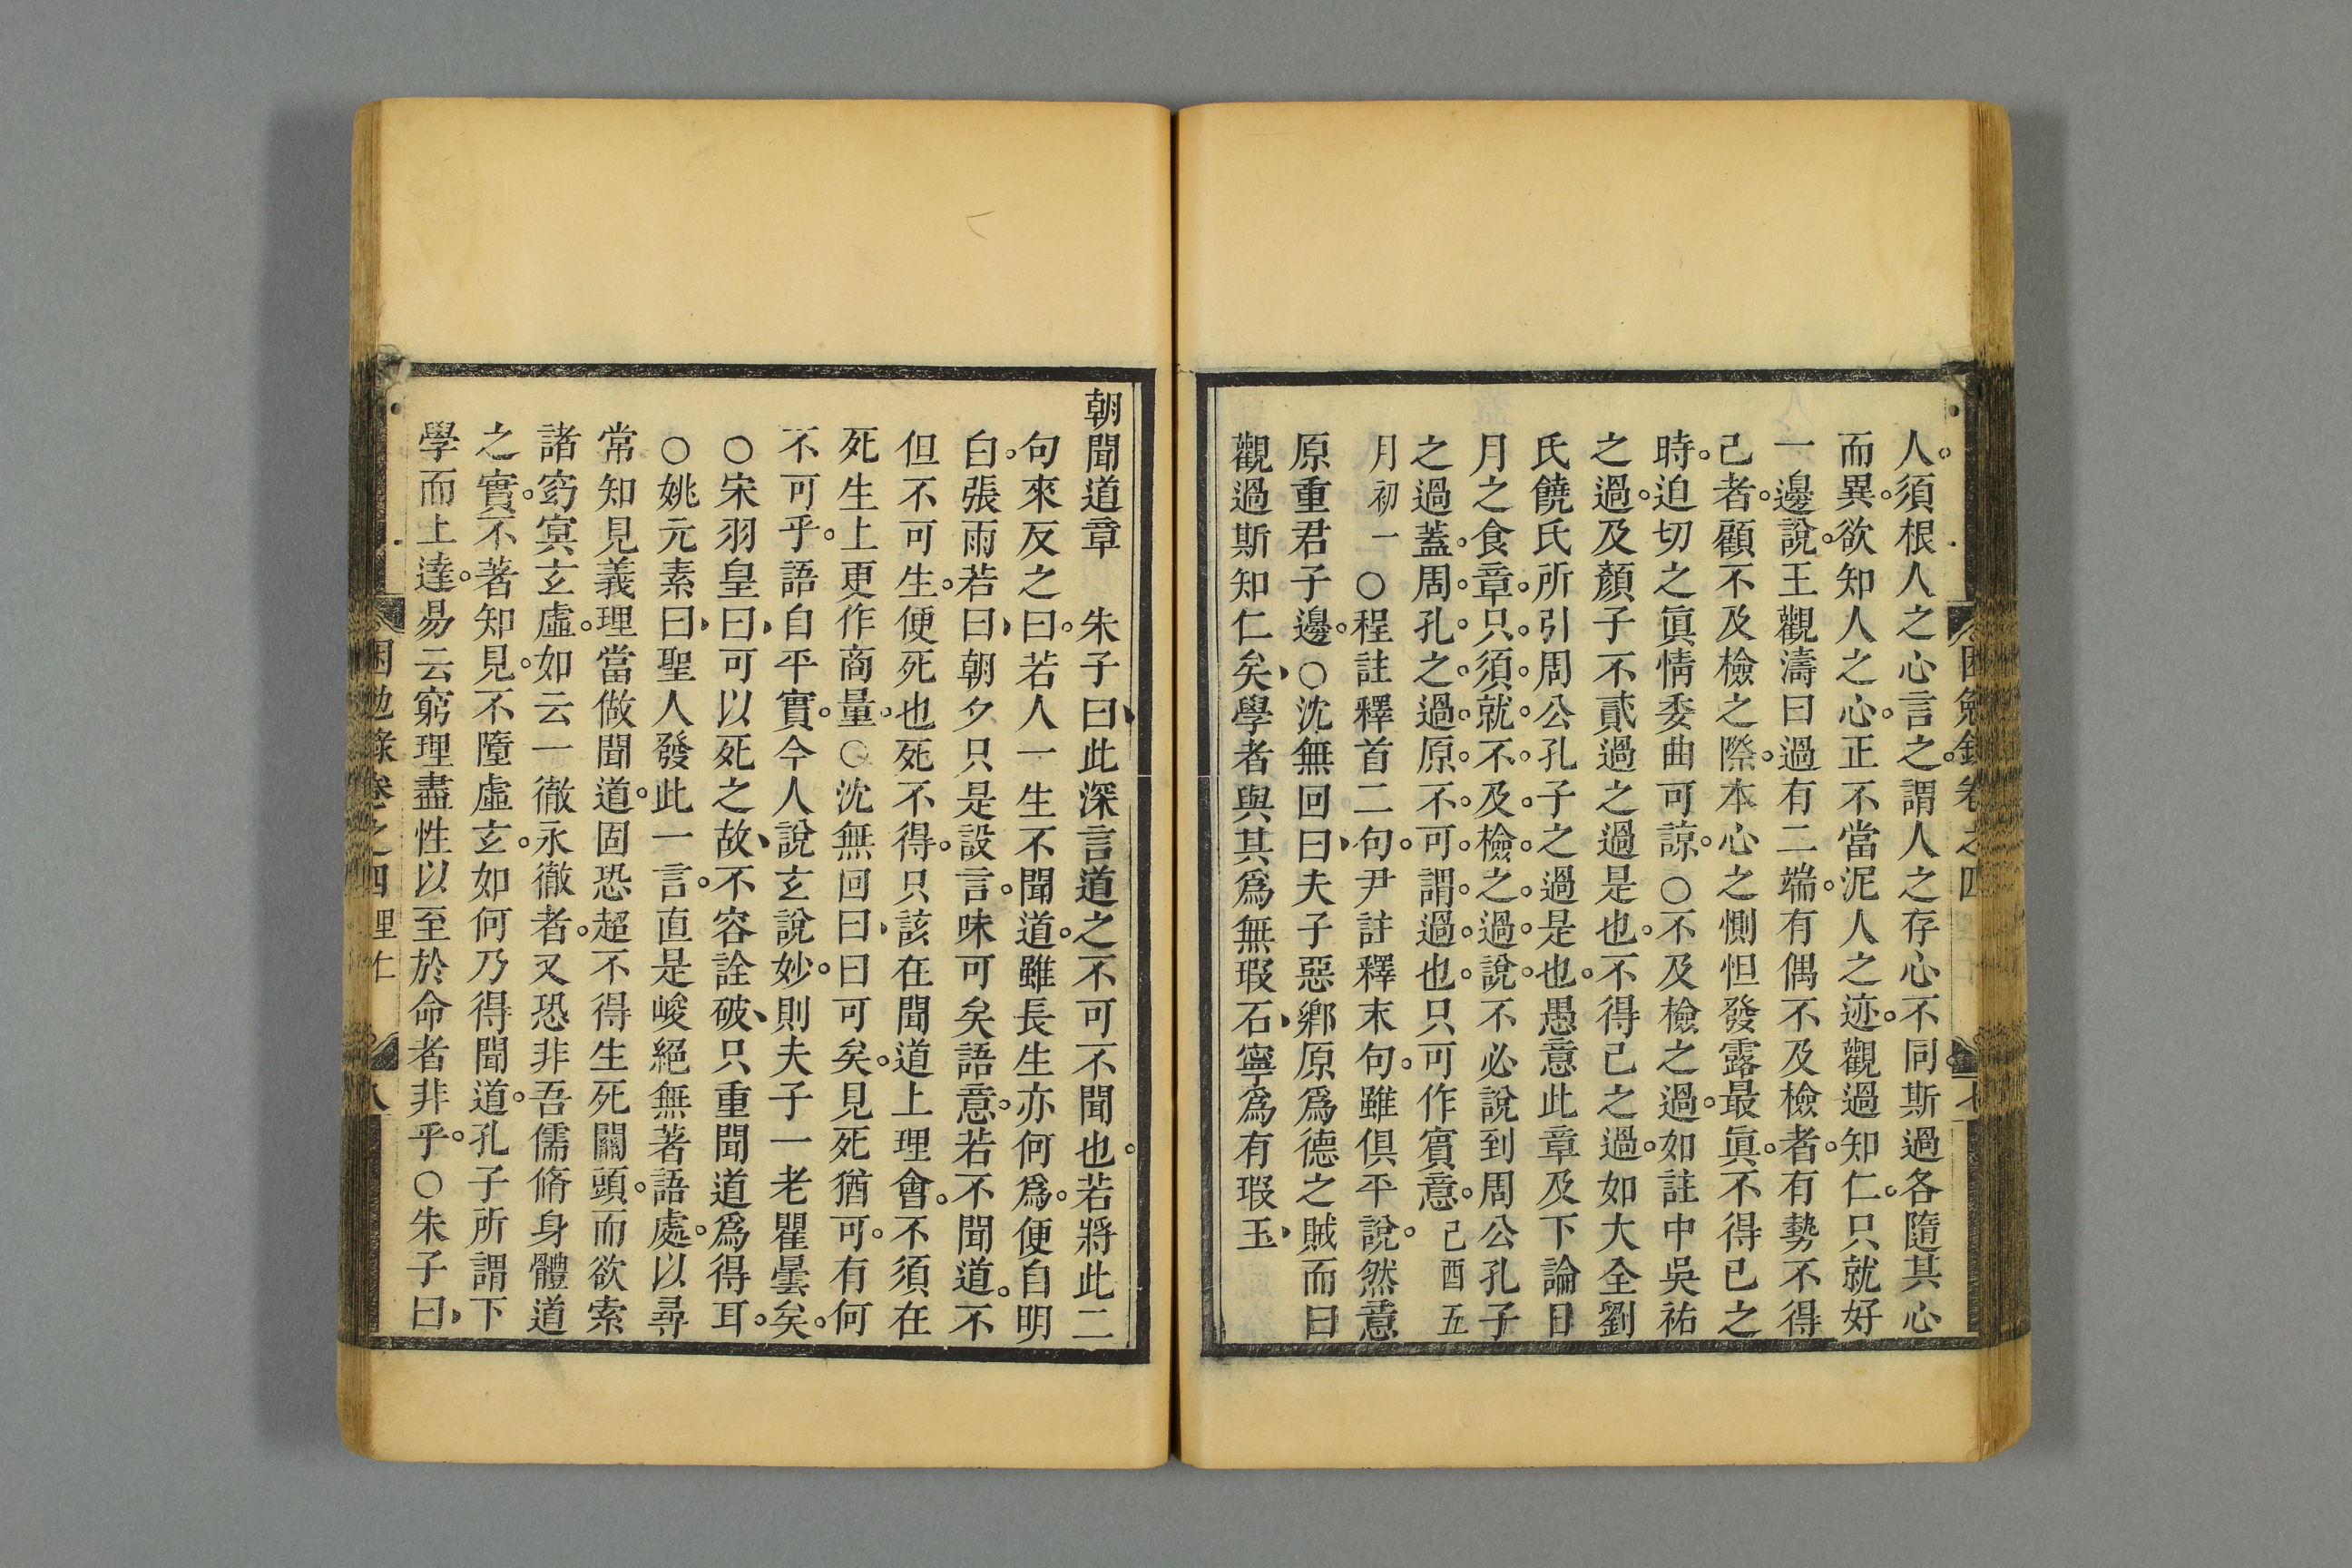 人須根人之心言之謂人之存心不同斯過各隨其心
而異欲知人之心正不當泥人之迹觀過知仁只就好
一邊說王觀濤曰過有二端有偶不及檢者有勢不得
己者顧不及檢之際本心之惻怛發露最眞不得已之
時迫切之眞情委曲可諒○不及檢之過如註中吳祐
之過及顏子不貳過之過是也不得己之過如大全劉
氏饒氏所引周公孔子之過是也愚意此章及下論日
月之食章只須就不及檢之過說不必說到周公孔子
之過蓋周孔之過原不可謂過也只可作賓意己酉五
月初一○程註釋首二句尹註釋末句雖俱平說然意
原重君子邊○沈無回曰夫子惡鄉原爲德之賊而曰
觀過斯知仁矣學者與其爲無瑕石寧爲有瑕玉
困勉錄卷之四
朝聞道章 朱子曰此深言道之不可不聞也若將此二
句來反之曰若人一生不聞道雖長生亦何爲便自明
白張雨若曰朝夕只是設言味可矣語意若不聞道不
但不可生便死也死不得只該在聞道上理會不須在
死生上更作商量○沈無回曰曰可矣見死猶可有何
不可乎語自平實今人說玄說妙則夫子一老瞿曇矣
○宋羽皇曰可以死之故不容詮破只重聞道爲得耳
○姚元素曰聖人發此一言直是峻絕無著語處以尋
常知見義理當做聞道固恐超不得生死關頭而欲索
諸窈冥玄虛如云一徹永徹者又恐非吾儒脩身體道
之實不著知見不墮虛玄如何乃得聞道孔子所謂下
學而上達易云窮理盡性以至於命者非乎○朱子曰
困勉錄卷之四 里仁 八